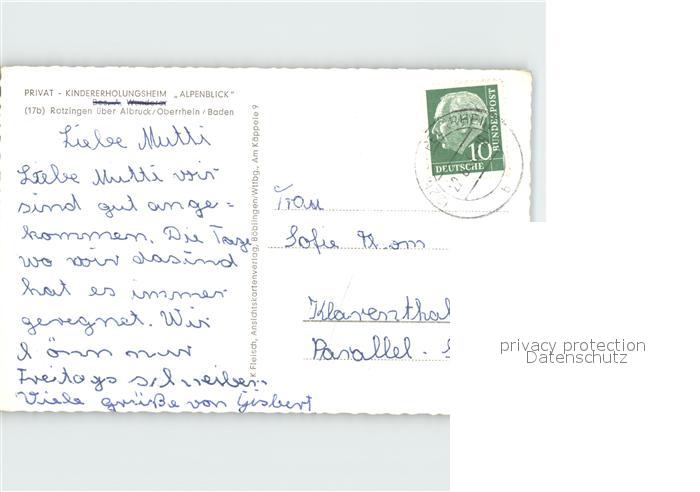 PRIVAT - KINDERERHOLUNGSHEIM „ALPENBLICK"
Bes. A. Wanderer
(17b) Rotzingen über Albruck/Oberrhein/Baden
Liebe Mutti
Liebe Mutti wir
sind gut ange=
kommen. Die Tage
wo wir dasind
hat es immer
geregnet. Wir
könn nur
Freitags schreiben
Viele grüße von Gisbert
K Fleisch, Ansichtskartenverlag, Böblingen/Wttbg., Am Käppele 9
10
DEUTSCHE
BUNDESPOST
Frau
Sofie
Klarenthal
Parallel-
privacy protection
Datenschutz